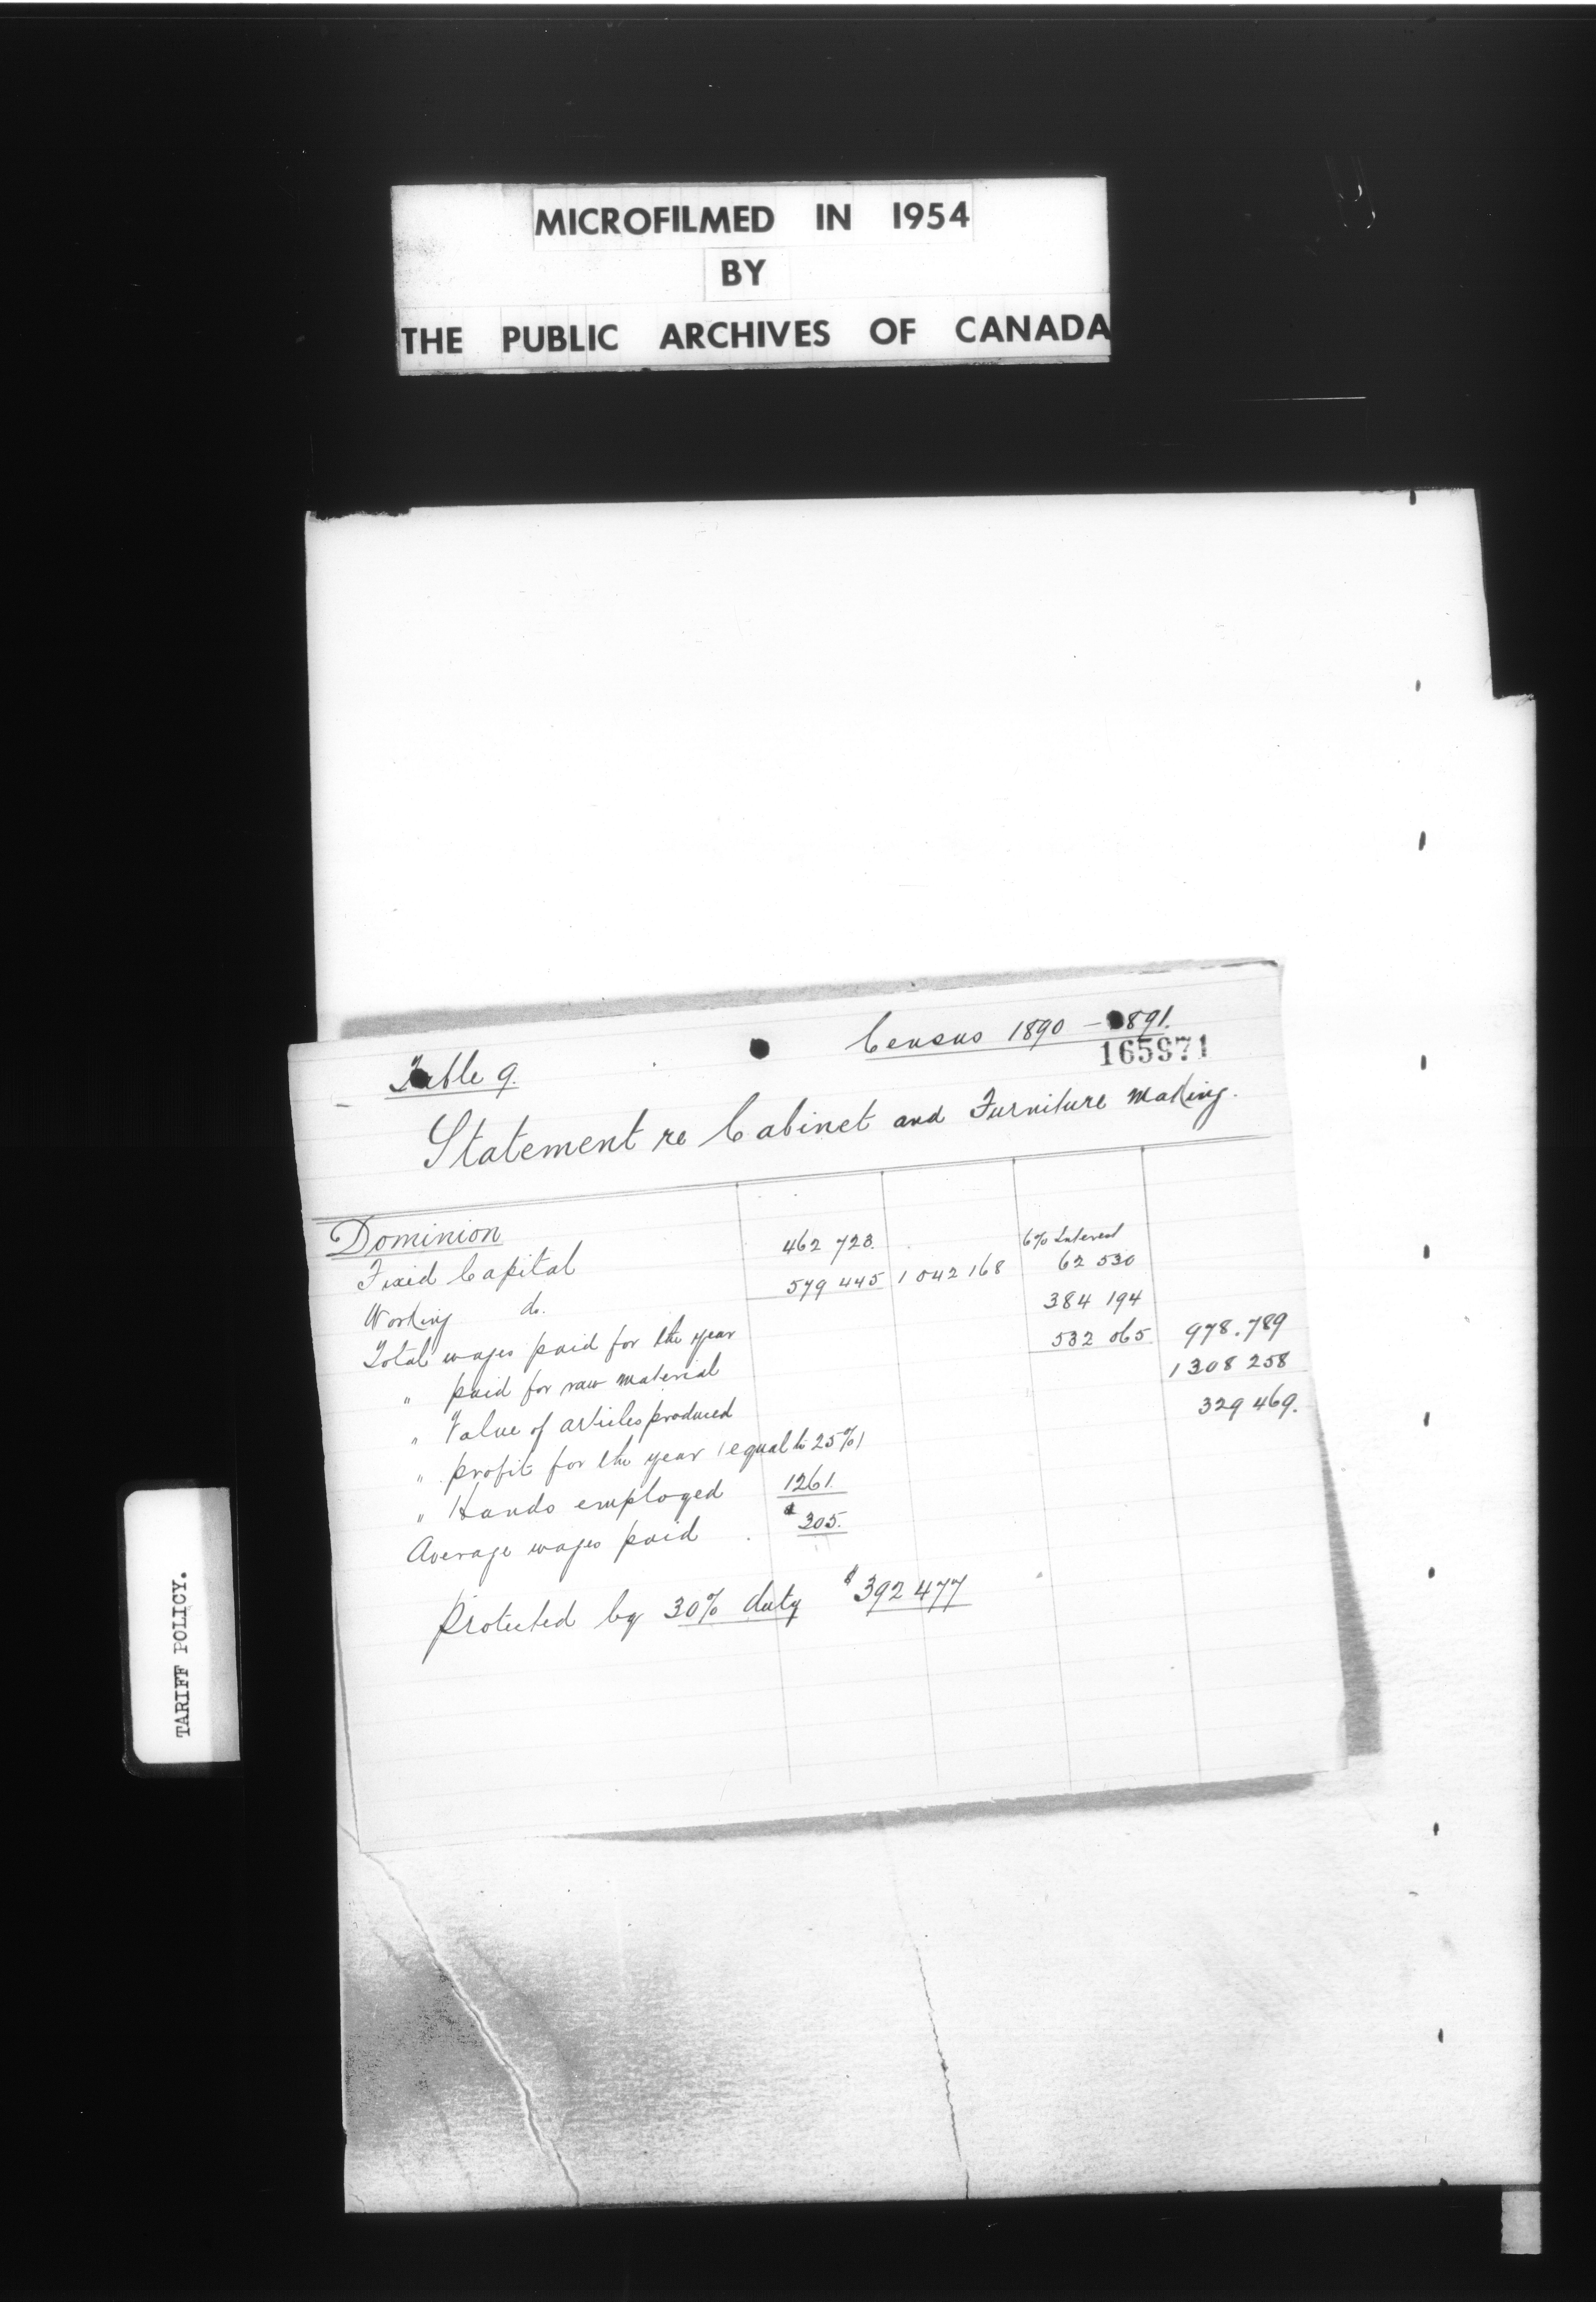 MICROFILMED IN 1954
BY
THE PUBLIC ARCHIVES OF CANADA
Table 9. Census 1890 - 1891.
165971
Statement re Cabinet and Furniture Making.
Dominion
Fixed Capital 462 723. 6% Interest
Working do. 579 445 1 042 168 62 530
Total wages paid for the year 384 194
" paid for raw material 532 065 978.789
" Value of articles produced 1 308 258
" profit for the year (equal to 25%) 329 469.
" Hands employed 1261.
Average wages paid $305.
Protected by 30% duty $392 477
TARIFF POLICY.